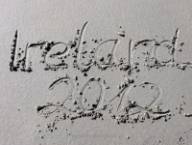 Ireland
2012